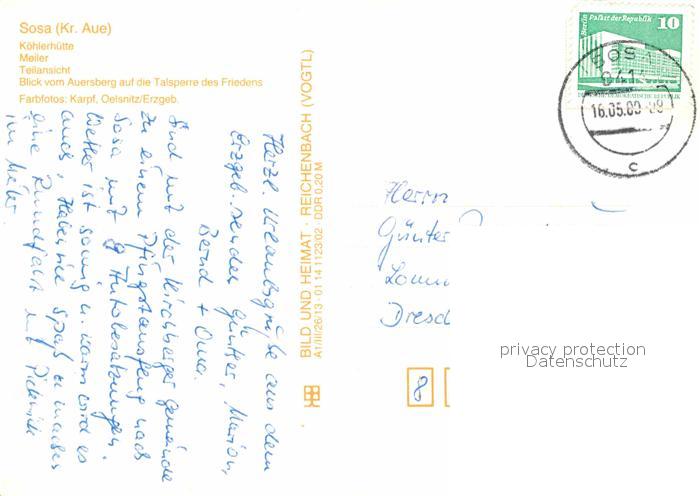 Sosa (Kr. Aue)
Köhlerhütte
Meiler
Teilansicht
Blick vom Auersberg auf die Talsperre des Friedens
Farbfotos: Karpf, Oelsnitz/Erzgeb.
BILD UND HEIMAT · REICHENBACH (VOGTL)
A1/III/26/13 · 01 14 1123/02 · DDR 0,20 M
Berlin Palast der Republik 10
DEUTSCHE DEMOKRATISCHE REPUBLIK
SOSA
16.05.
c
Herzl. Urlaubsgrüße aus dem
Erzgeb. senden Günther, Marion,
Bernd + Oma.
Sind mit der Kirchberger Gemeinde
zu einem Pfingstausflug nach
Sosa mit 9 Autobesatzungen.
Wetter ist sonnig u. warm wird es
auch. Haben viel Spaß u. machen
eine Rundfahrt mit Picknick
im Meiler.
Herrn
Günter
Dresd
8
privacy protection
Datenschutz